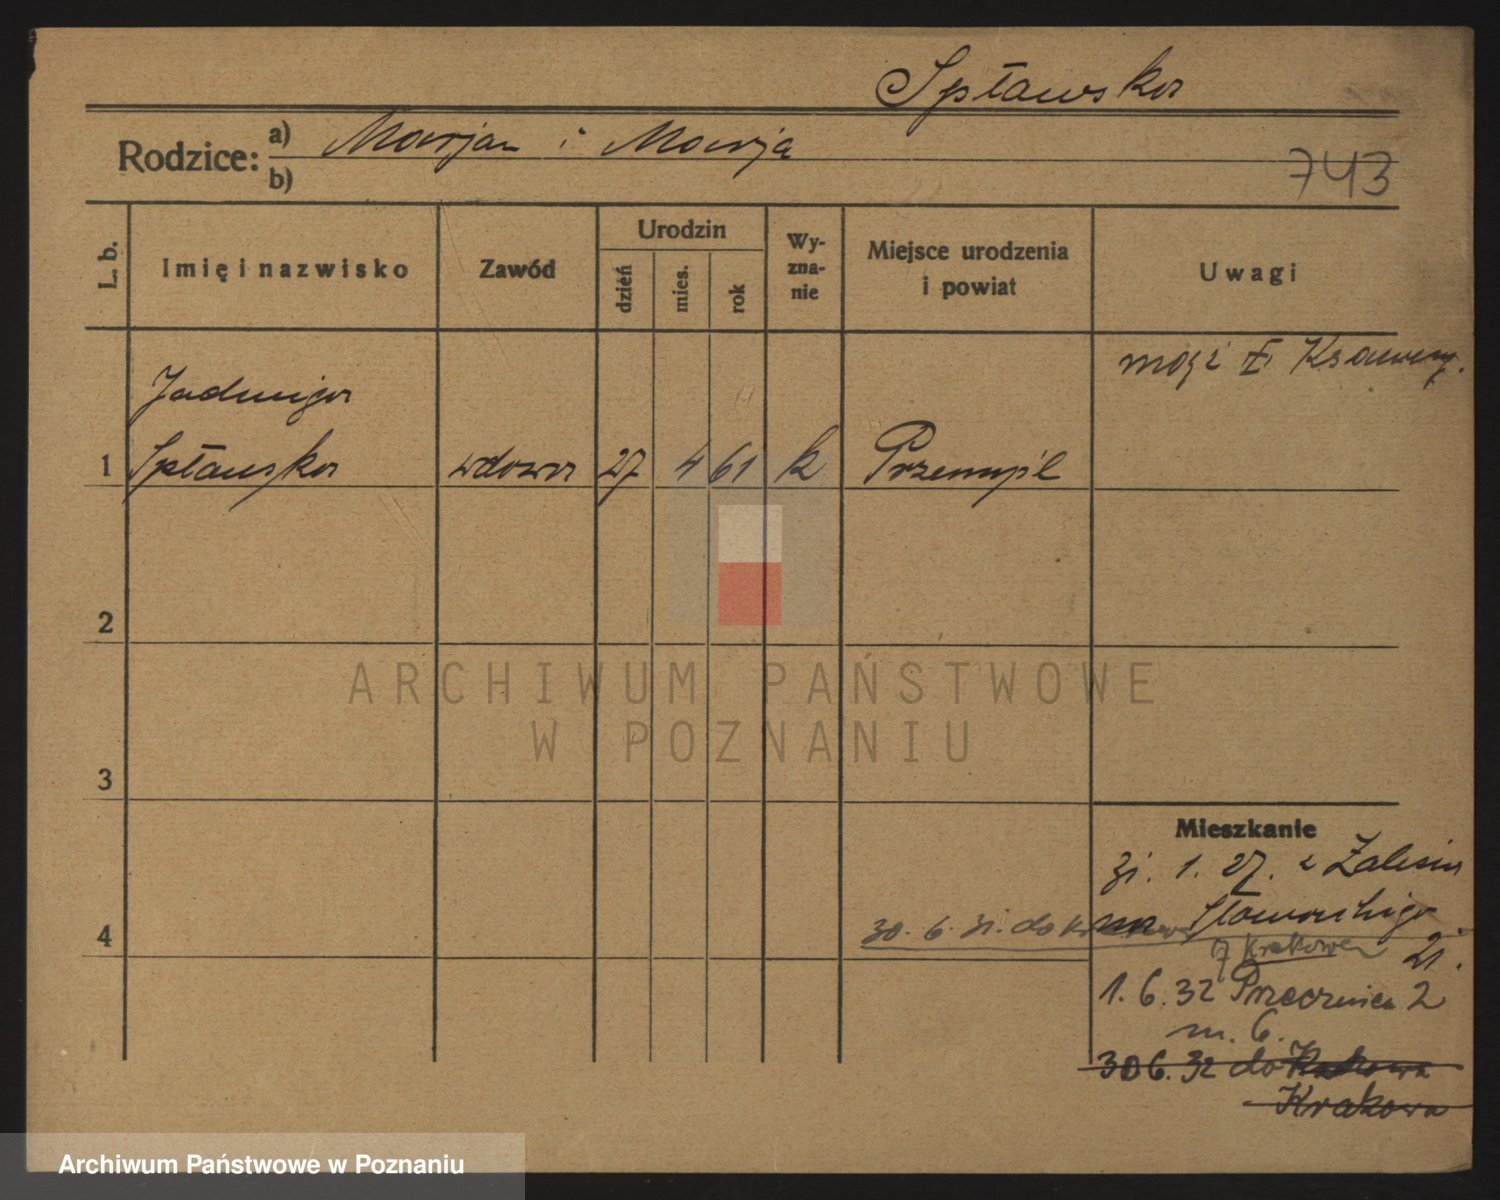 Spławska
Rodzice: a) Marjan i Marja
b)
743
L. b.
Imię i nazwisko
Zawód
Urodzin
dzień
mies.
rok
Wy-
zna-
nie
Miejsce urodzenia
i powiat
Uwagi
mąż Ksawery.
Jadwiga
1 Spławska wdowa 27 4 61 k Przemyśl
2
ARCHIWUM PAŃSTWOWE
W POZNANIU
3
Mieszkanie
31. 1. 27. z Zalesia
Słowackiego
21.
4
30. 6. 31. do Krakowa
z Krakowa
1. 6. 32 Przecznica 2
m. 6.
30 6. 32 do Krakowa
Krakowa
Archiwum Państwowe w Poznaniu